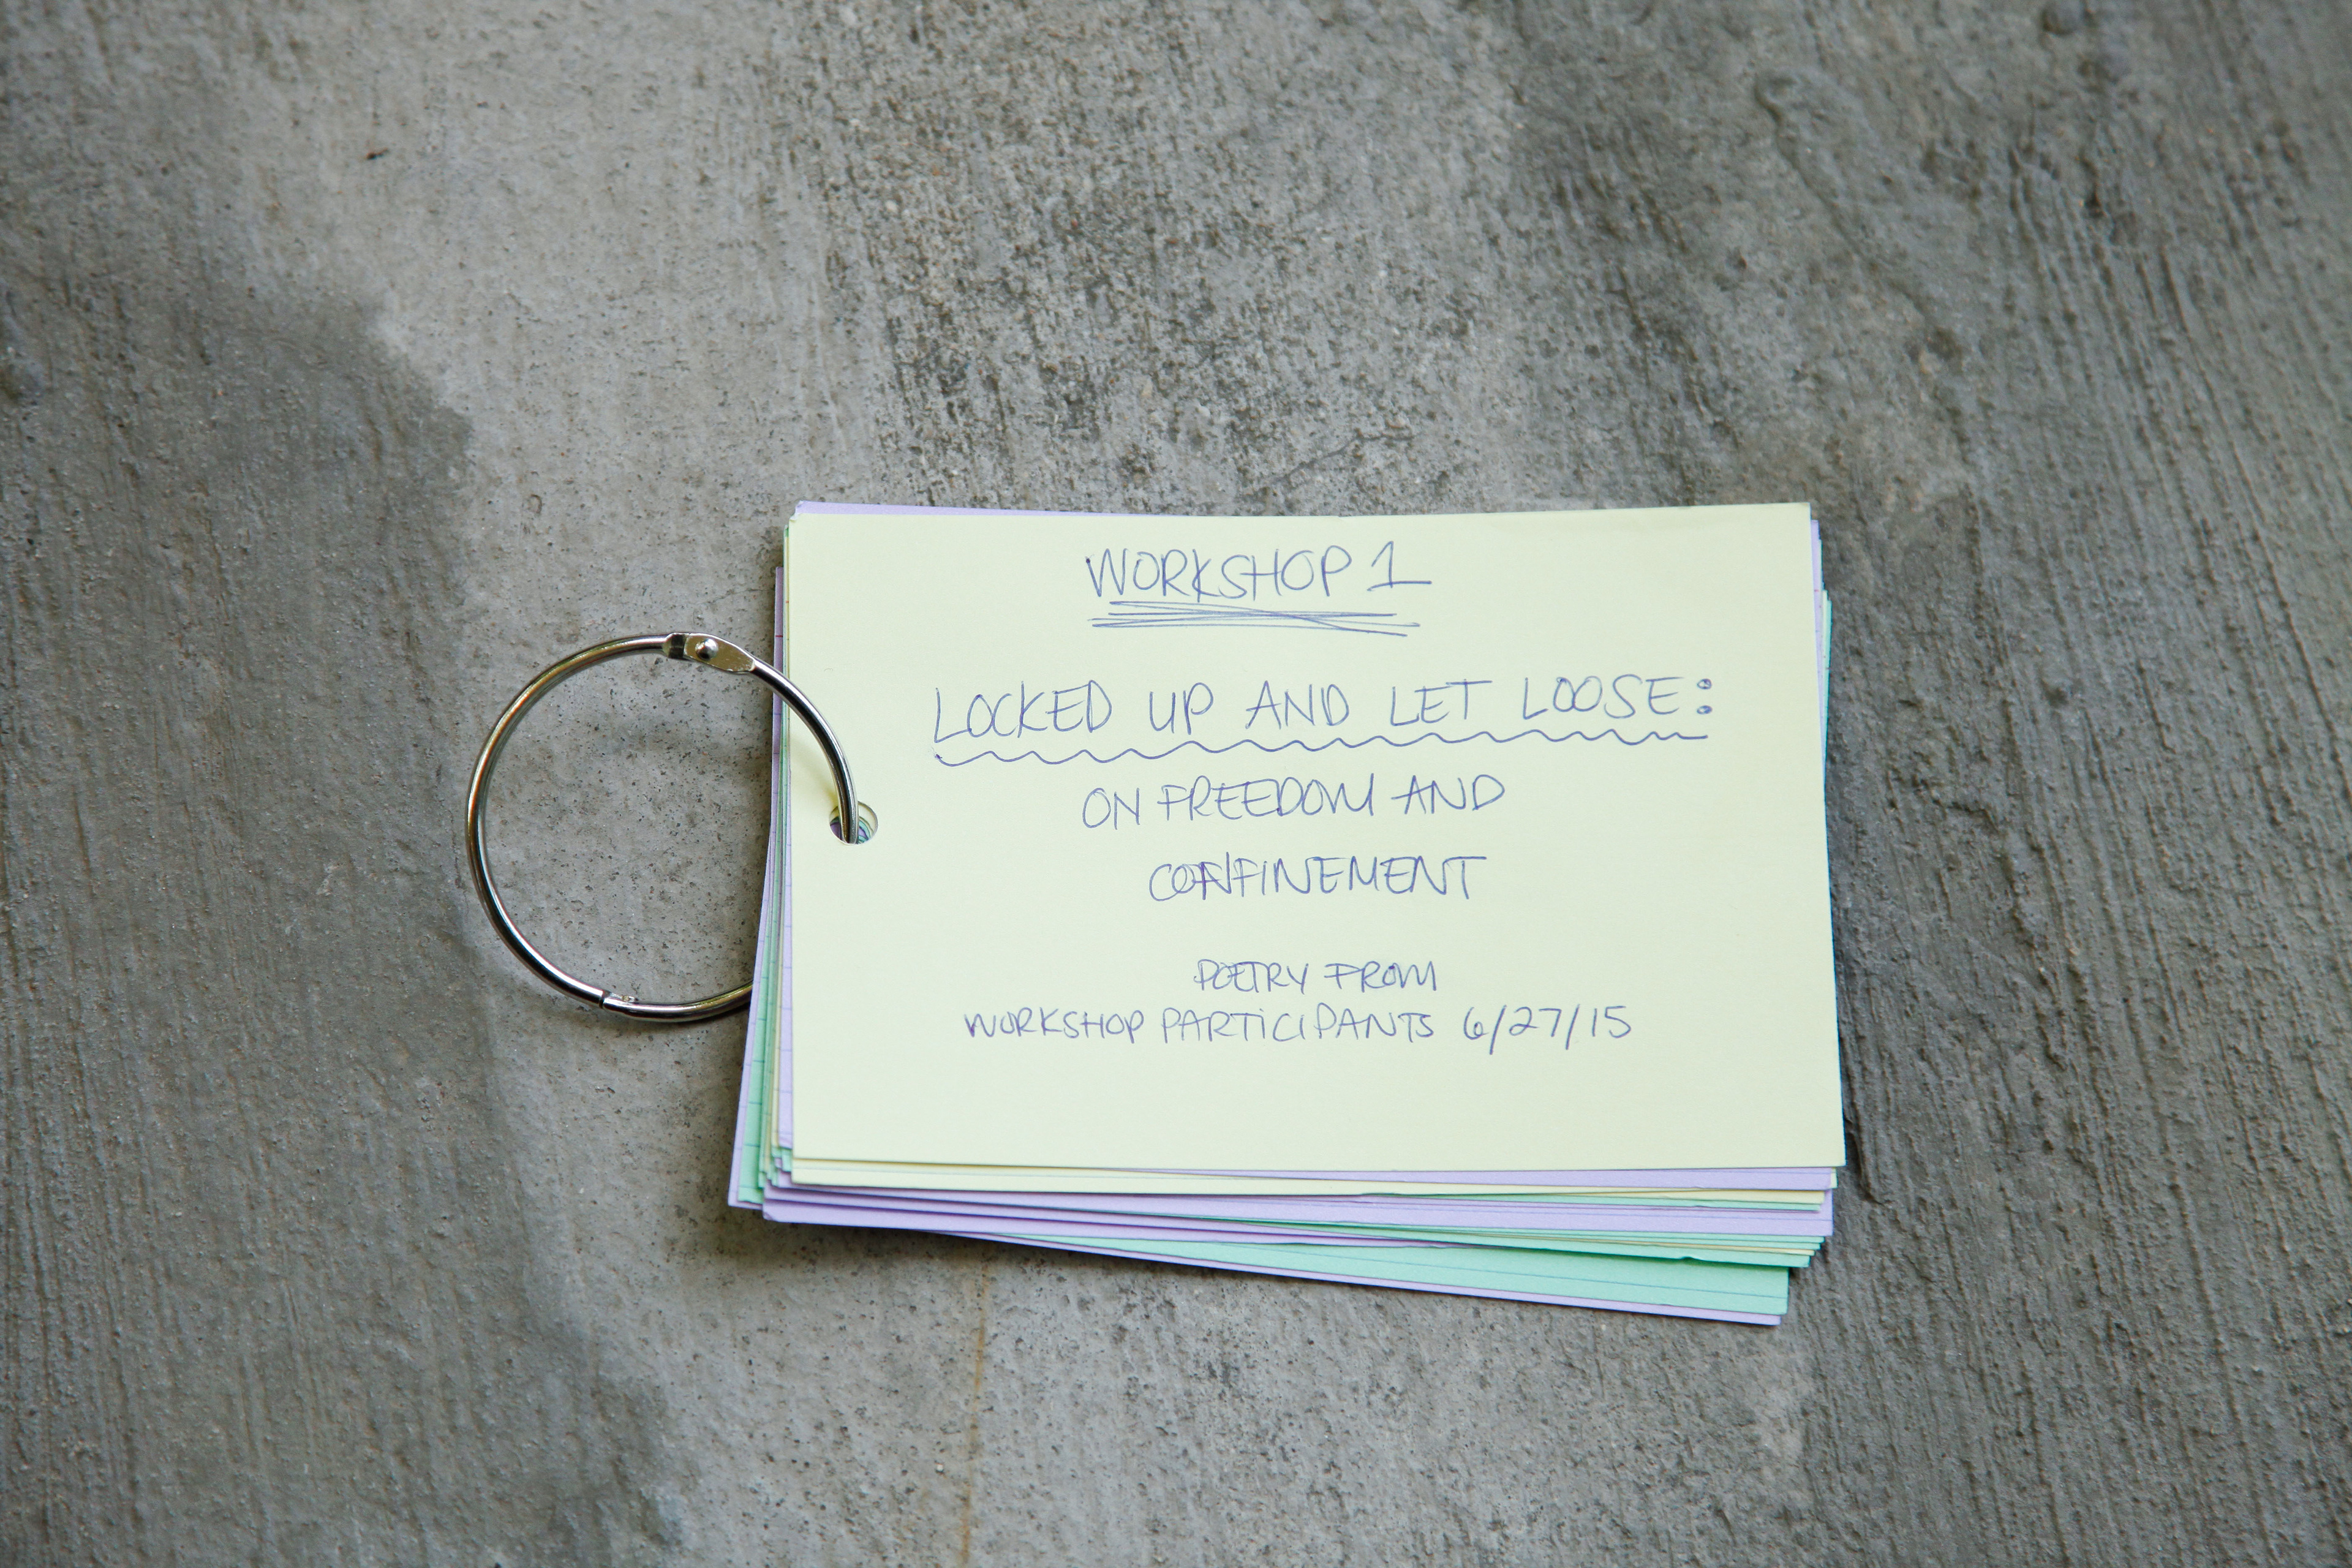 WORKSHOP 1
LOCKED UP AND LET LOOSE:
ON FREEDOM AND
CONFINEMENT
POETRY FROM
WORKSHOP PARTICIPANTS 6/27/15